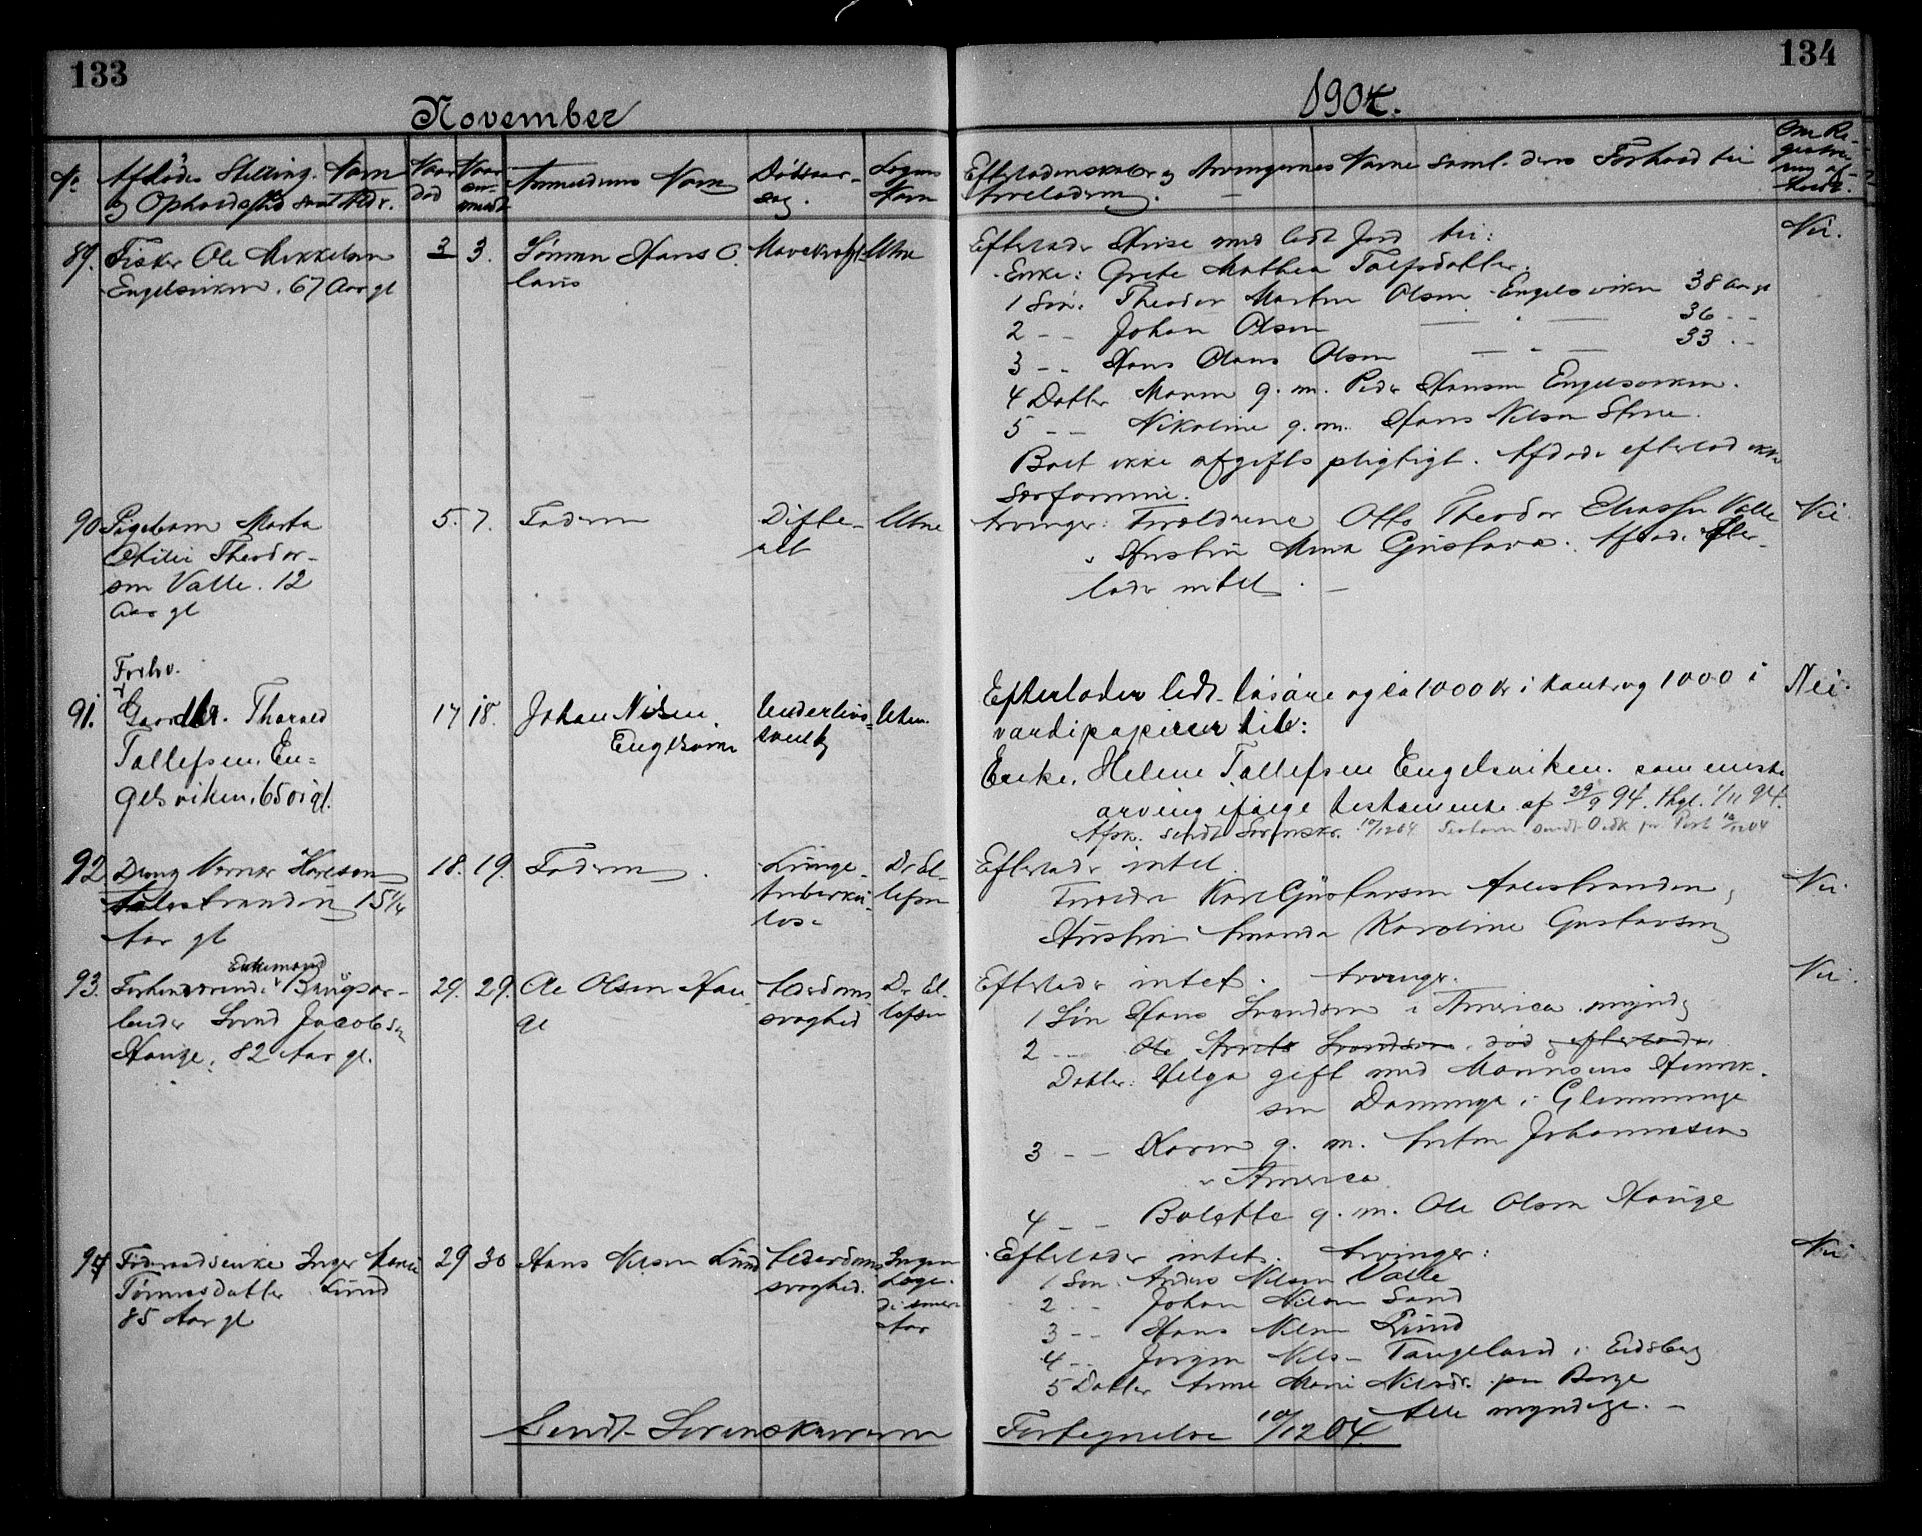 133
134
November
1904.
No
Afdødes Stilling, Navn
og Opholdssted samt Alder.
Naar
død
Naar
an-
meldt
Anmelderens Navn
Dødsaar-
sag.
Lægens
Navn
Efterladenskaber og Arvingernes Navne samt deres Forhold til
Arveladeren.
Om Re-
gistre-
ring af-
holdt.
89. Fisker Ole Mikkelsen
Engelsviken. 67 Aar gl
3 3.
Sønnen Hans O.
laus
Mavekræft
Uten
Efterlader Huse med lidt Jord til:
Enke: Grete Mathea Tolfsdatter.
1 Søn: Theodor Martin Olsen Engelsviken 38 Aar gl
2 - - Johan Olsen — " — 36 - -
3 - - Hans Olaus Olsen — " — 33 - -
4 Datter Maren g. m. Peder Hansen Engelsviken.
5 - - Nikoline g. m. Hans Nilsen Stene.
Boet ikke afgiftspligtigt. Afdøde efterlod ikke
Særformue.
Nei.
90 Pigebarn Marta
Otilie Theodor-
sen Valle. 12
Aar gl
5. 7.
Faderen
Difte-
rit
Uten
Arvinger: Forældrene Otto Theodor Eliassen Valle
og Hustru Mina Gustava. Afdøde efter-
lader intet.
Nei
91. Forhv.
Gaardbr. Tharald
Tollefsen, En-
gelsviken, 65 år gl.
17 18.
Johan Nilsen,
Engelsviken
Underlivs-
svulst
Uten.
Efterlader lidt løsøre og ca 1000 kr i kont. og 1000 i
værdipapirer til:
Enke, Helene Tollefsen Engelsviken. som eneste
arving ifølge testamente af 29/9 94. thgl. 1/11 94.
Afsk. sendt Sorenskr. 10/12 04
Nei.
92. Dreng Verner Karlsen
Aalestranden 15 1/4
Aar gl
18. 19.
Faderen
Lunge-
tuberku-
lose
Dr El-
lefsen
Efterlader intet.
Forældre Karl Gustavsen Aalestranden,
Hustru Amanda Karoline Gustavsen
Nei.
93. Enkemand
Forhenværende Brugsør-
lender Svend Jacobsen
Hauge, 82 Aar gl.
29. 29.
Ole Olsen Hau-
ge
Alderdoms-
svaghed
Dr El-
lefsen
Efterlader intet. Arvinger.
1 Søn Hans Svendsen i Amerika. myndig
2 - - Ole Svendsen. død efterlader
Datter: Helga gift med Magnus Henrik-
sen Damminge i Glemminge
3 - - Karen g. m. Anton Johannesen
i Amerika
4 - - Bolette g. m. Ole Olsen Hauge
Nei.
94 Føderaadsenke Inger Marie
Tønnesdatter Lund
85 Aar gl
29 30
Hans Nilsen Lund
Alderdoms-
svaghed.
Ingen
Læge
de senere
Aar
Efterlader intet. Arvinger:
1 Søn. Anders Nilsen Valle
2 - - Johan Nilsen Sand
3 - - Hans Nilsen Lund
4 - - Jørgen Nils- Tangeland i Eidsberg
5 Datter Anne Marie Nilsdr. paa Borge
Alle myndige. -
Nei
Sendt Sorenskriveren
Fortegnelse 10/12 04.